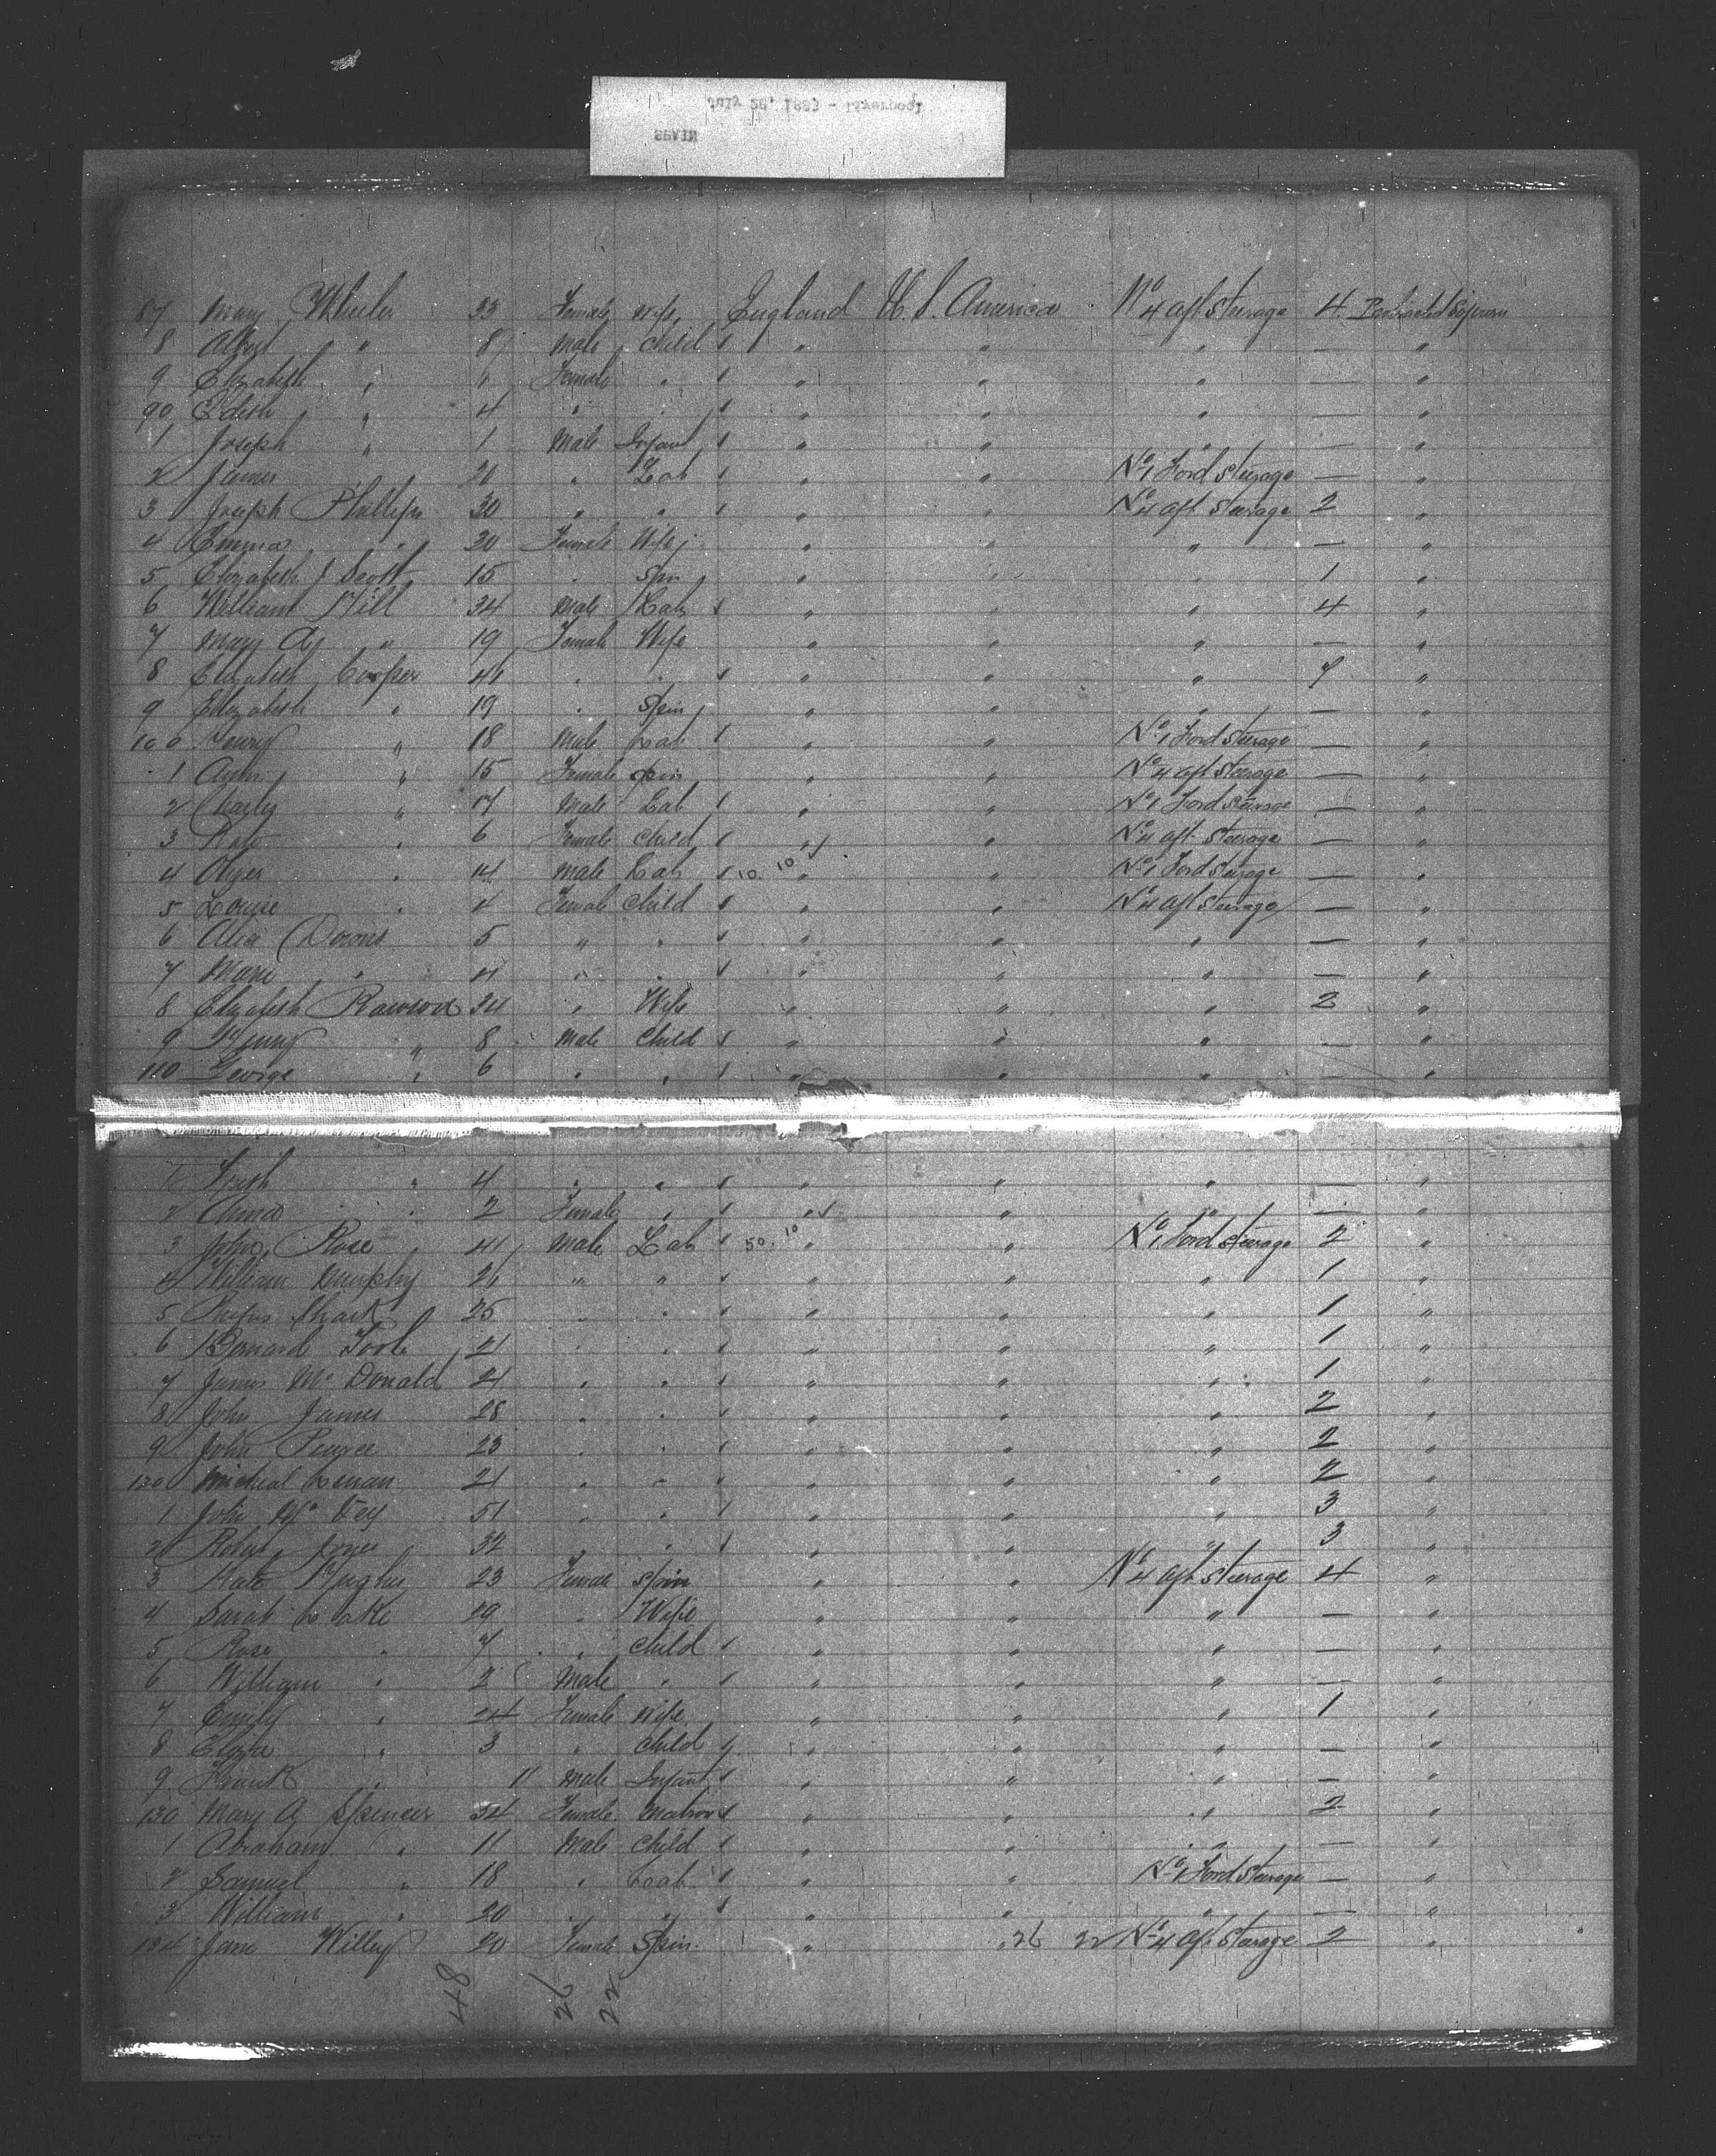 July 26, 1883 - Liverpool
SPAIN
87 Mary Wheeler 33 Female Wife England U.S. America No 4 aft steerage 4 Protracted Sojourn
8 Albert " 8 Male Child " " " — "
9 Elizabeth " 6 Female " " " " — "
90 Edith " 4 " " " " " — "
1 Joseph " 1 Male Infant " " " — "
2 James " 21 " Lab " " No 1 Ford steerage — "
3 Joseph Phillips 30 " " " " No 4 aft steerage 2 "
4 Emma " 30 Female Wife " " " — "
5 Elizabeth J Scott 15 " Spin " " " 1 "
6 William Hill 34 Male Lab " " " 4 "
7 Mary A " 19 Female Wife " " " — "
8 Elizabeth Cooper 41 " " " " " 7 "
9 Elizabeth " 19 " Spin " " " — "
100 Henry " 18 Male Lab " " No 1 Ford steerage — "
1 Ann " 15 Female Spin " " No 4 aft steerage — "
2 Charles " 17 Male Lab " " No 1 Ford steerage — "
3 Kate " 6 Female Child " " No 4 aft steerage — "
4 " 14 Male Lab 10. 10 " " No 1 Ford steerage — "
5 Louise " 4 Female Child " " No 4 aft steerage — "
6 Alice Downs 5 " " " " " — "
7 " 4 " " " " " — "
8 Elizabeth Rawson 34 " Wife " " " 2 "
9 Henry " 8 Male Child " " " — "
110 George " 6 " " " " " — "
1 " 4 " " " " " — "
2 " 2 Female " " " " — "
3 John Rose 41 Male Lab 50. 10 " " No 1 Ford steerage 2 "
4 William Murphy 21 " " " " " 1 "
5 25 " " " " " 1 "
6 Bernard Toole 21 " " " " " 1 "
7 James McDonald 21 " " " " " 1 "
8 John James 28 " " " " " 2 "
9 John Pearce 23 " " " " " 2 "
120 Micheal 21 " " " " " 2 "
1 John Mc 51 " " " " " 3 "
2 Robert Jones 32 " " " " " 3 "
3 Kate Hughes 23 Female Spin " " No 4 aft steerage 4 "
4 Sarah 29 " Wife " " " — "
5 Rose " 7 " Child " " " — "
6 William " 2 Male " " " " — "
7 Emily " 24 Female Wife " " " 1 "
8 " 3 " Child " " " — "
9 Frank " 11 Male Infant " " " — "
130 Mary A Spencer 54 Female Matron " " " 2 "
1 Abraham " 11 Male Child " " " — "
2 Samuel " 18 " Lab " " No 1 Ford steerage — "
3 William " 20 " " " " " — "
134 Jane Willey 20 Female Spin. " " 26 22 No 4 aft steerage 2 "
48 26 22